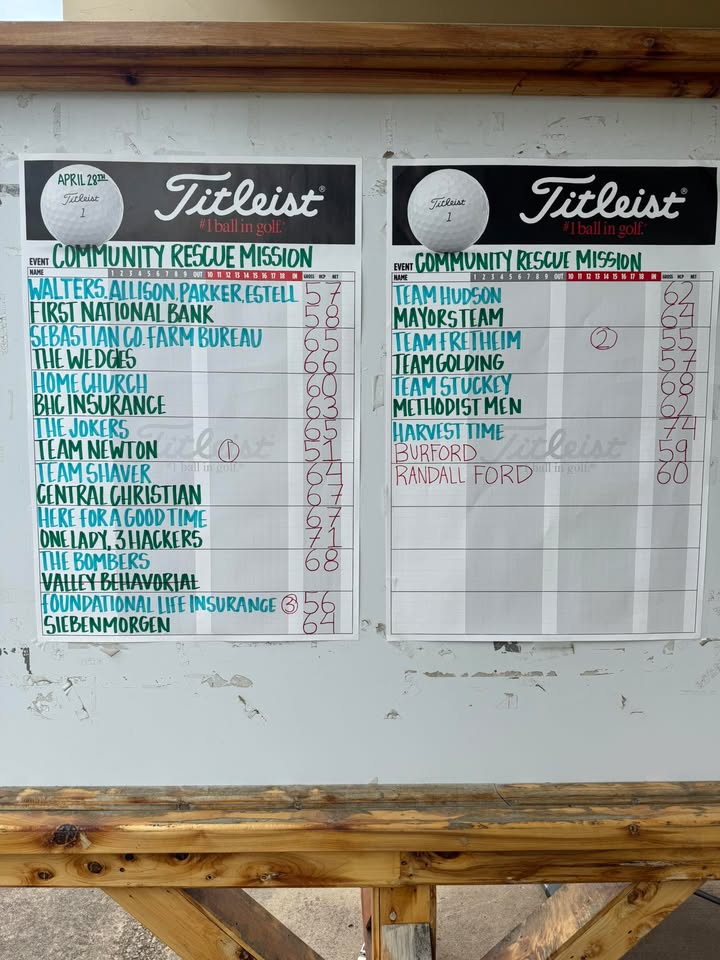 APRIL 28TH
Titleist
1
Titleist®
#1 ball in golf.®
EVENT COMMUNITY RESCUE MISSION
NAME 1 2 3 4 5 6 7 8 9 OUT 10 11 12 13 14 15 16 17 18 IN GROSS HCP NET
WALTERS, ALLISON, PARKER, ESTELL 57
FIRST NATIONAL BANK 58
SEBASTIAN CO. FARM BUREAU 65
THE WEDGES 66
HOME CHURCH 60
BHC INSURANCE 63
THE JOKERS 65
TEAM NEWTON 1 51
TEAM SHAVER 64
CENTRAL CHRISTIAN 67
HERE FOR A GOOD TIME 67
ONE LADY, 3 HACKERS 71
THE BOMBERS 68
VALLEY BEHAVORIAL
FOUNDATIONAL LIFE INSURANCE 3 56
SIEBENMORGEN 64
Titleist
#1 ball in golf.®
Titleist
1
Titleist®
#1 ball in golf.®
EVENT COMMUNITY RESCUE MISSION
NAME 1 2 3 4 5 6 7 8 9 OUT 10 11 12 13 14 15 16 17 18 IN GROSS HCP NET
TEAM HUDSON 62
MAYORS TEAM 64
TEAM FRETHEIM 2 55
TEAM GOLDING 57
TEAM STUCKEY 68
METHODIST MEN
HARVEST TIME 74
BURFORD 59
RANDALL FORD 60
Titleist
ball in golf.®